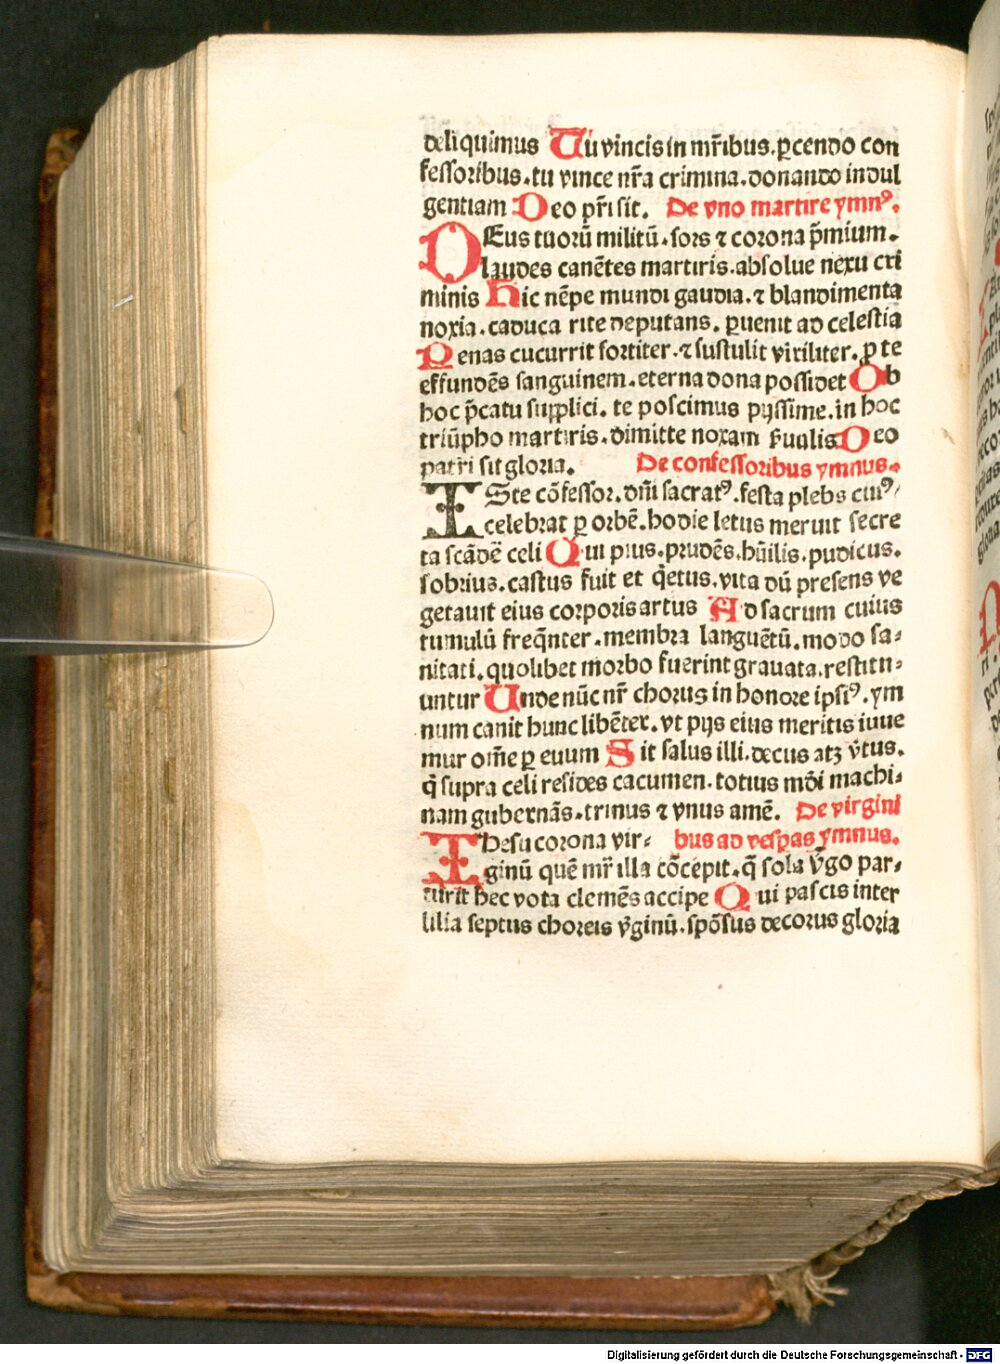 deliquimus Tu vincis in mr̄ibus. ꝑcendo con
fessoribus. tu vince nr̄a crimina. donando indul
gentiam Deo pr̄i sit. De vno martire ymnꝰ.
DEus tuorū militū. sors ⁊ corona p̄mium.
laudes canētes martiris. absolue nexu cri
minis Hic nēpe mundi gaudia. ⁊ blandimenta
noxia. caduca rite deputans. ꝑuenit ad celestia
Penas cucurrit fortiter. ⁊ sustulit viriliter. ꝑ te
effundēs sanguinem. eterna dona possidet Ob
hoc p̄catu supplici. te poscimus pijssime. in hoc
triūpho martiris. dimitte noxam ẜuulis Deo
patri sit gloria. De confessoribus ymnus.
ISte cōfessor. dn̄i sacratꝰ. festa plebs cuiꝰ/
celebrat ꝑ orbē. hodie letus meruit secre
ta scādē celi Qui pius. prudēs. hūilis. pudicus.
sobrius. castus fuit et q̇etus. vita dū presens ve
getauit eius corporis artus Ad sacrum cuius
tumulū freq̄nter. membra languētū. modo sa⸗
nitati. quolibet morbo fuerint grauata. restitu⸗
untur Unde nūc nr̄ chorus in honore ipsiꝰ. ym
num canit hunc libēter. vt pijs eius meritis iuue
mur om̄e ꝑ euum Sit salus illi. decus atqꝫ v̄tus.
q̇ supra celi resides cacumen. totius mōi machi⸗
nam gubernās. trinus ⁊ vnus amē. De virgini
Ihesu corona vir⸗ bus ad vespas ymnus.
ginū quē mr̄ illa cōcepit. q̄ sola v̄go par⸗
turit hec vota clemēs accipe Qui pascis inter
lilia septus choreis v̄ginū. spōsus decorus gloria
Digitalisierung gefördert durch die Deutsche Forschungsgemeinschaft - DFG